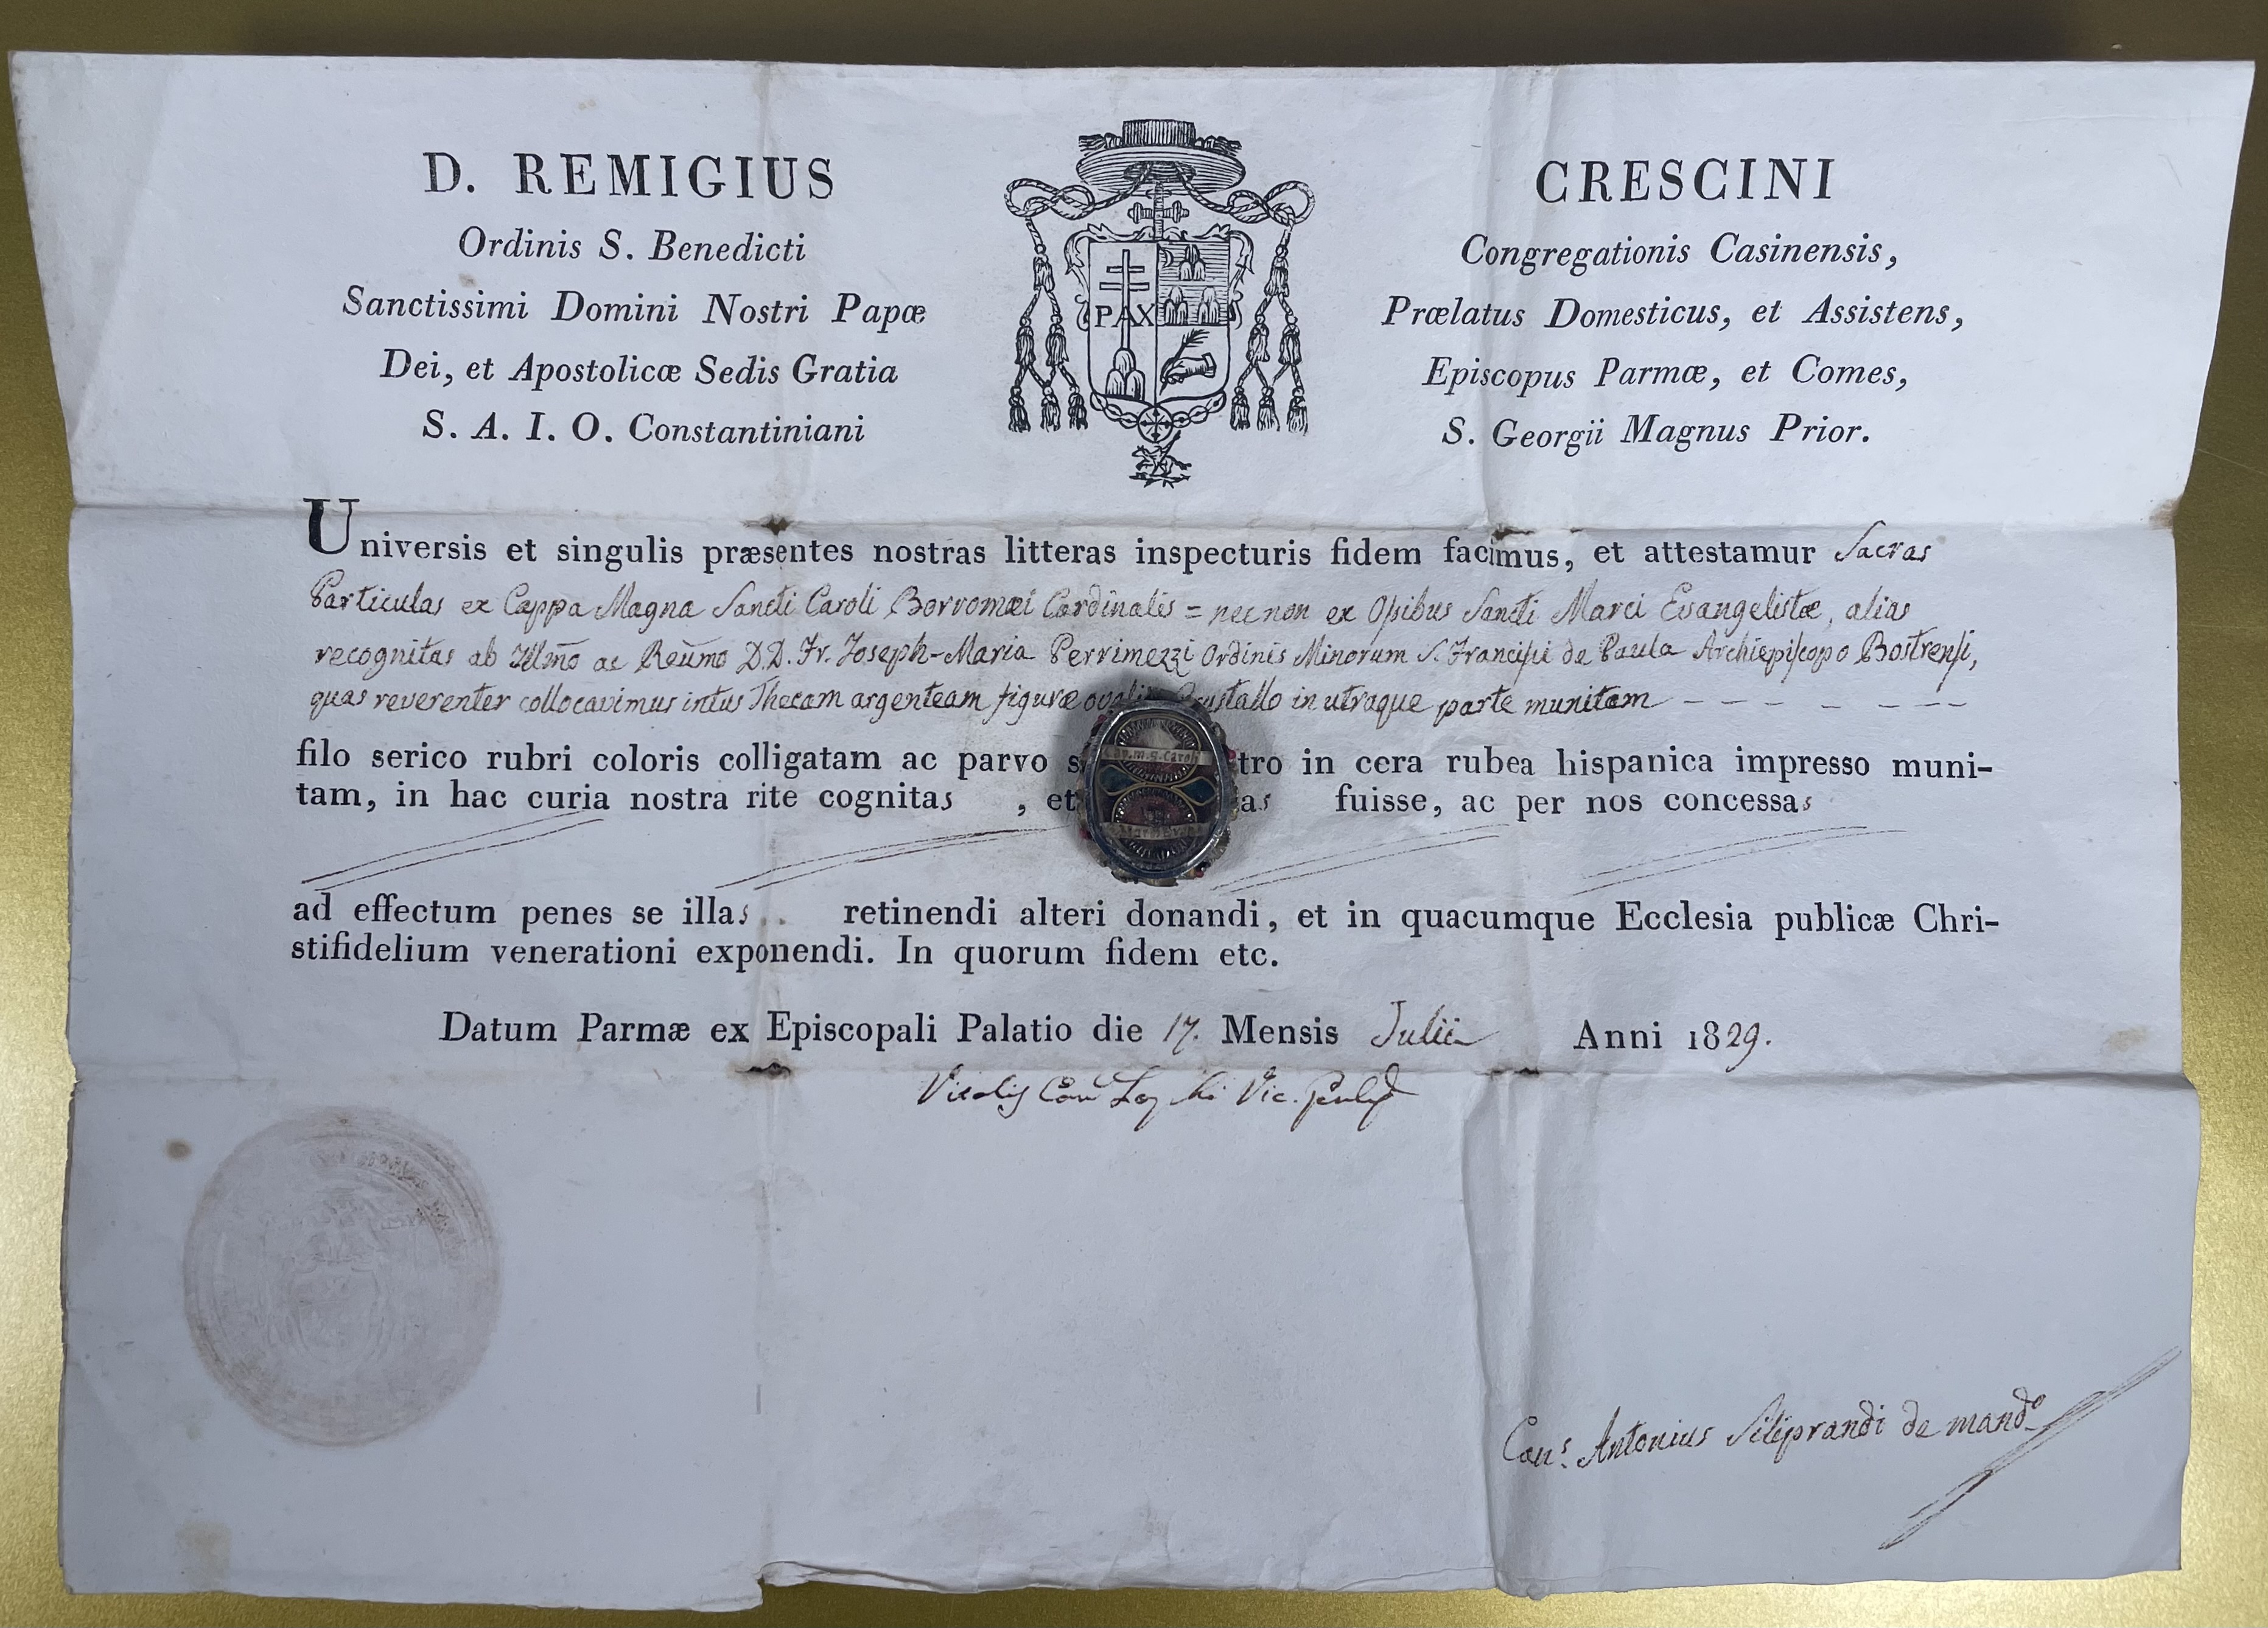 D. REMIGIUS CRESCINI
Ordinis S. Benedicti Congregationis Casinensis,
Sanctissimi Domini Nostri Papæ Prælatus Domesticus, et Assistens,
Dei, et Apostolicæ Sedis Gratia Episcopus Parmæ, et Comes,
S. A. I. O. Constantiniani S. Georgii Magnus Prior.
PAX
Universis et singulis præsentes nostras litteras inspecturis fidem facimus, et attestamur Sacras
Particulas ex Cappa Magna Sancti Caroli Borromæi Cardinalis = nec non ex Ossibus Sancti Marci Evangelistæ, alias
recognitas ab Illmo ac Reumo D.D. Fr. Joseph-Maria Perrimezzi Ordinis Minorum S. Francisci de Paula Archiepiscopo Bostrensi,
quas reverenter collocavimus intus Thecam argenteam figuræ in utraque parte munitam
filo serico rubri coloris colligatam ac parvo s tro in cera rubea hispanica impresso muni-
tam, in hac curia nostra rite cognitas , et as fuisse, ac per nos concessas
S. Caroli
ad effectum penes se illas retinendi alteri donandi, et in quacumque Ecclesia publicæ Chri-
stifidelium venerationi exponendi. In quorum fidem etc.
Datum Parmæ ex Episcopali Palatio die 17. Mensis Julii Anni 1829.
Vic.
Antonius Siliprandi de mando